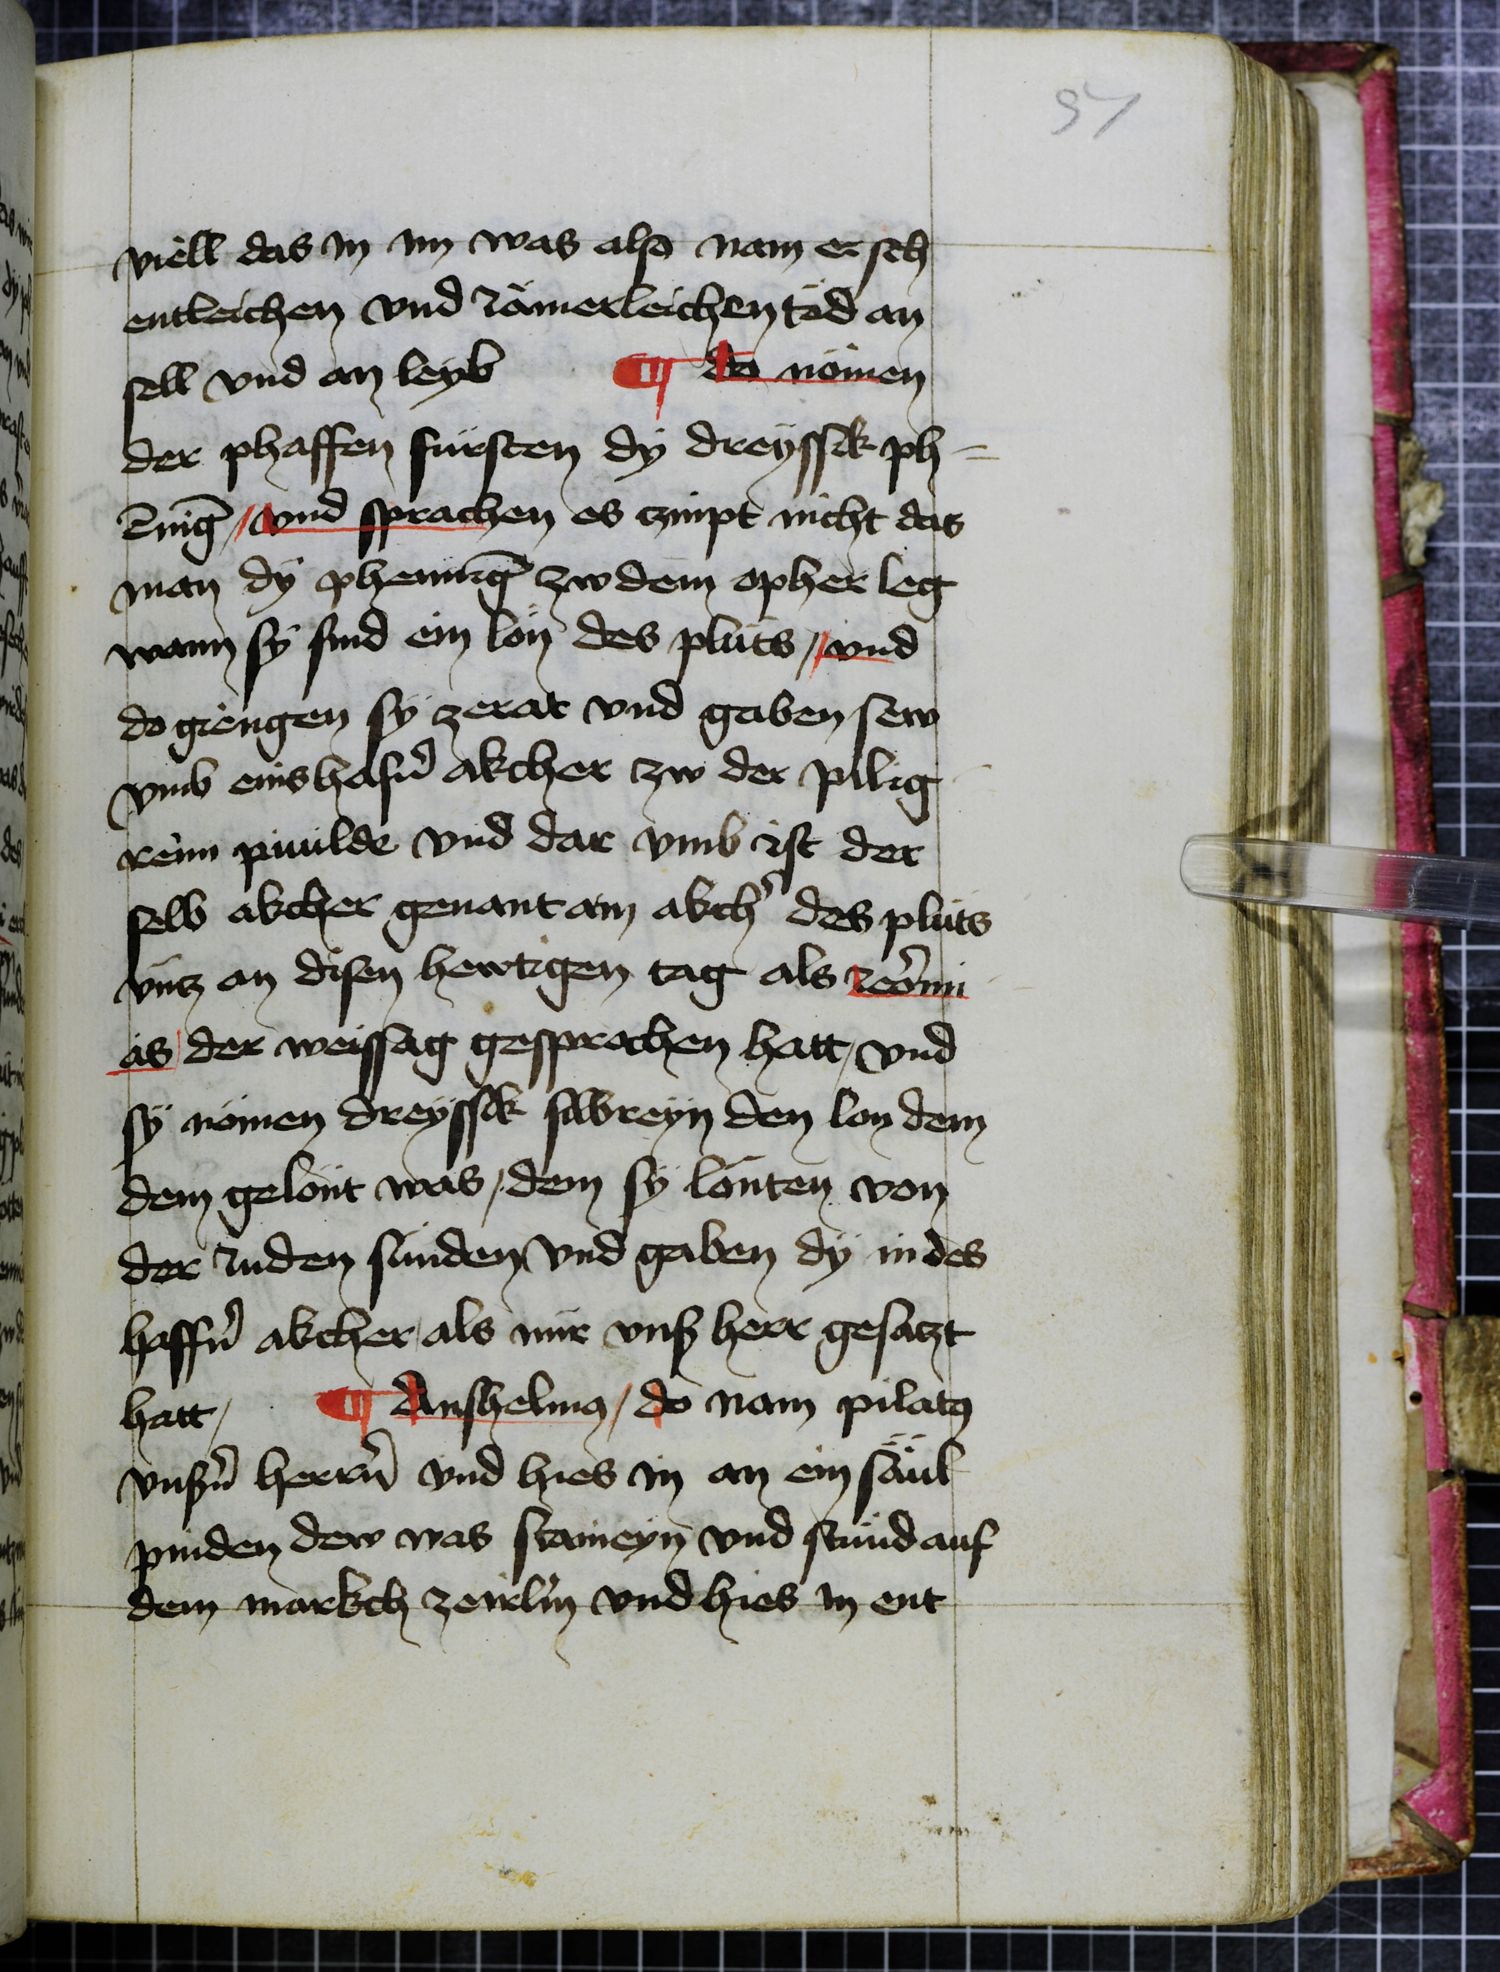 97
viell das in im was also nam er sch
entleichen vnd iämerleichen tod an
sell vnd an leyb ¶ do nömen
der phaffen fürsten dÿ dreÿssik ph=
ening / vnd sprachen es czimpt nicht das
man dÿ phening zw dem opher leg
wann sÿ sind ein lon des pluts / vnd
do giengen sÿ zerat vnd gaben sew
vmb eins hafn̄ akcher zw der pilig
reim piuilde vnd dar vmb ist der
selb akcher genant ain akch̄ des pluts
vntz an disen hewtigen tag als Ieromi
as der weissag gesprochen hatt / vnd
sÿ nömen dreÿssik silbreyn den lon dem
dem gelont was / dem sÿ lonten von
der iuden sunden vnd gaben dÿ in des
haffn̄ akcher als mir vnß herr gesatzt
hatt / ¶ Anshelmꝰ / do nam pilatꝰ
vnßn̄ herrn̄ vnd hies in an ein säul
pinden dew was stameyn vnd stund auf
dem markch zeirlin vnd hies in ent